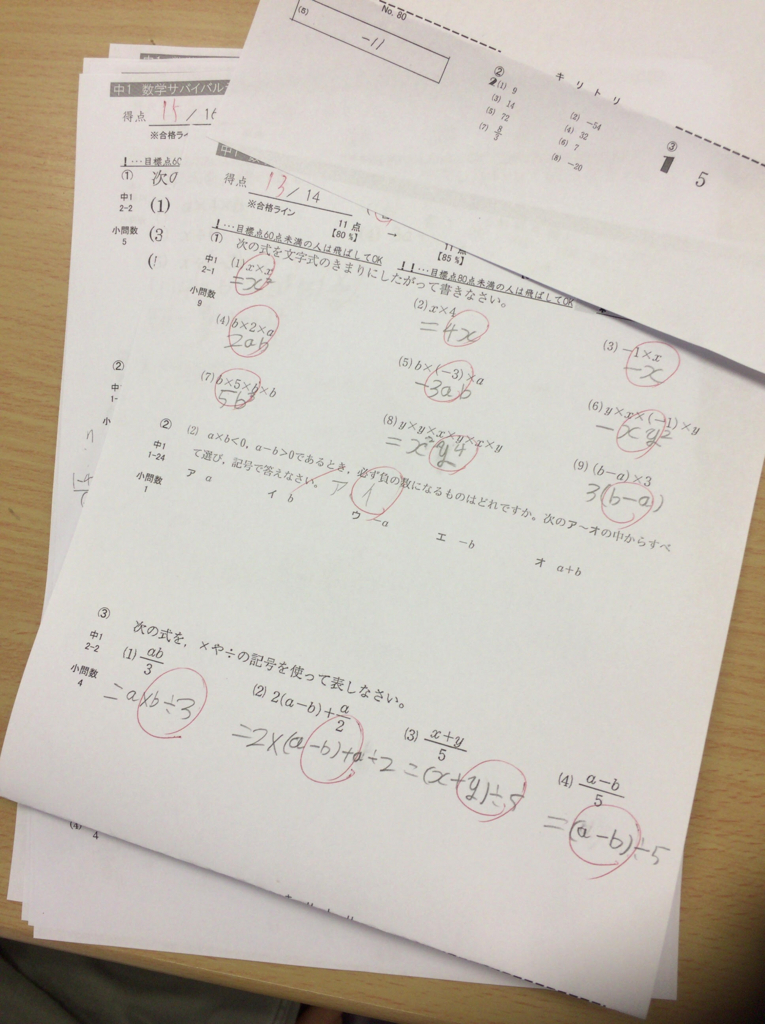 No. 80
(8)
-11
キリトリ
②
2(1) 9
(2) -54
(3) 14
(4) 32
(5) 72
(6) 7
(7) 8/3
(8) -20
③
1 5
中1 数学サバイバル
得点 15 / 15
※合格ライ
1…目標点60
① 次の
中1
2-2
小問数
5
(1)
(3
②
中1
得点 13 / 14
※合格ライン
11 点
【80 %】
11 点
【85 %】
1…目標点60点未満の人は飛ばしてOK
11…目標点80点未満の人は飛ばしてOK
① 次の式を文字式のきまりにしたがって書きなさい。
中1
2-1
小問数
9
(1) x×x
=x²
(2) x×4
=4x
(3) -1×x
-x
(4) b×2×a
2ab
(5) b×(-3)×a
-3ab
(6) y×x×(-1)×y
-xy²
(7) b×5×b×b
5b³
(8) y×y×x×y×x×y
=x²y4
(9) (b-a)×3
3(b-a)
②
中1
1-24
小問数
1
(2) a×b<0, a-b>0であるとき，必ず負の数になるものはどれですか。次のア～オの中からすべ
て選び，記号で答えなさい。 ア イ
ア a
イ b
ウ -a
エ -b
オ a+b
③ 次の式を，×や÷の記号を使って表しなさい。
中1
2-2
小問数
4
(1) ab/3
=a×b÷3
(2) 2(a-b)+a/2
=2×(a-b)+a÷2
(3) x+y/5
=(x+y)÷5
(4) a-b/5
=(a-b)÷5
(4) 4
キリトリ